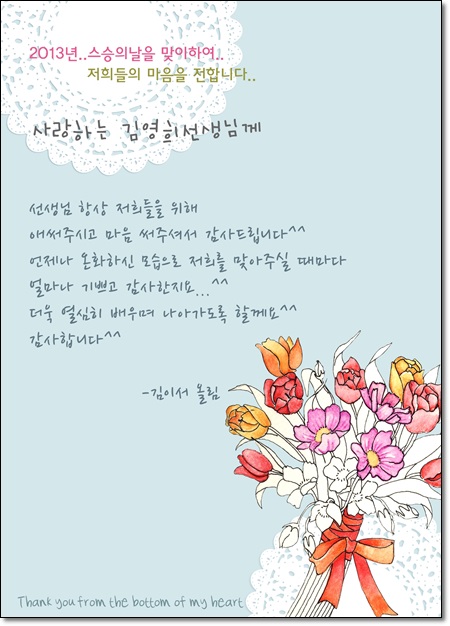 2013년..스승의날을 맞이하여..
저희들의 마음을 전합니다..
사랑하는 김영희선생님께
선생님 항상 저희들을 위해
애써주시고 마음 써주셔서 감사드립니다^^
언제나 온화하신 모습으로 저희를 맞아주실 때마다
얼마나 기쁘고 감사한지요...^^
더욱 열심히 배우며 나아가도록 할께요^^
감사합니다^^
-김이서 올림
Thank you from the bottom of my heart